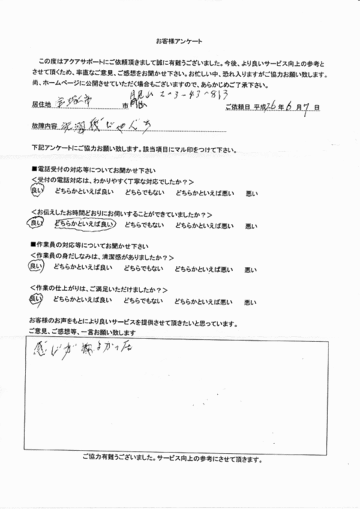 お客様アンケート
この度はアクアサポートにご依頼頂きまして誠に有難うございました。今後、より良いサービス向上の参考と
させて頂くため、率直なご意見、ご感想をお聞かせ下さい。お忙しい中、恐れ入りますがご協力お願い致します。
尚、ホームページに公開させていただく場合もございますので、あらかじめご了承下さい。
居住地 宝塚市 市 月見山2-3-43-813 ご依頼日 平成26年6月7日
故障内容 洗浄
下記アンケートにご協力お願い致します。該当項目にマル印をつけて下さい。
■電話受付の対応等についてお聞かせ下さい
<受付の電話対応は、わかりやすく丁寧な対応でしたか?>
良い どちらかといえば良い どちらでもない どちらかといえば悪い 悪い
<お伝えしたお時間どおりにお伺いすることができていましたか?>
良い どちらかといえば良い どちらでもない どちらかといえば悪い 悪い
■作業員の対応等についてお聞かせ下さい
<作業員の身だしなみは、清潔感がありましたか?>
良い どちらかといえば良い どちらでもない どちらかといえば悪い 悪い
<作業の仕上がりは、ご満足いただけましたか?>
良い どちらかといえば良い どちらでもない どちらかといえば悪い 悪い
お客様のお声をもとにより良いサービスを提供させて頂きたいと思っています。
ご意見、ご感想等、一言お願い致します
感じが よかった
ご協力有難うございました。サービス向上の参考にさせて頂きます。